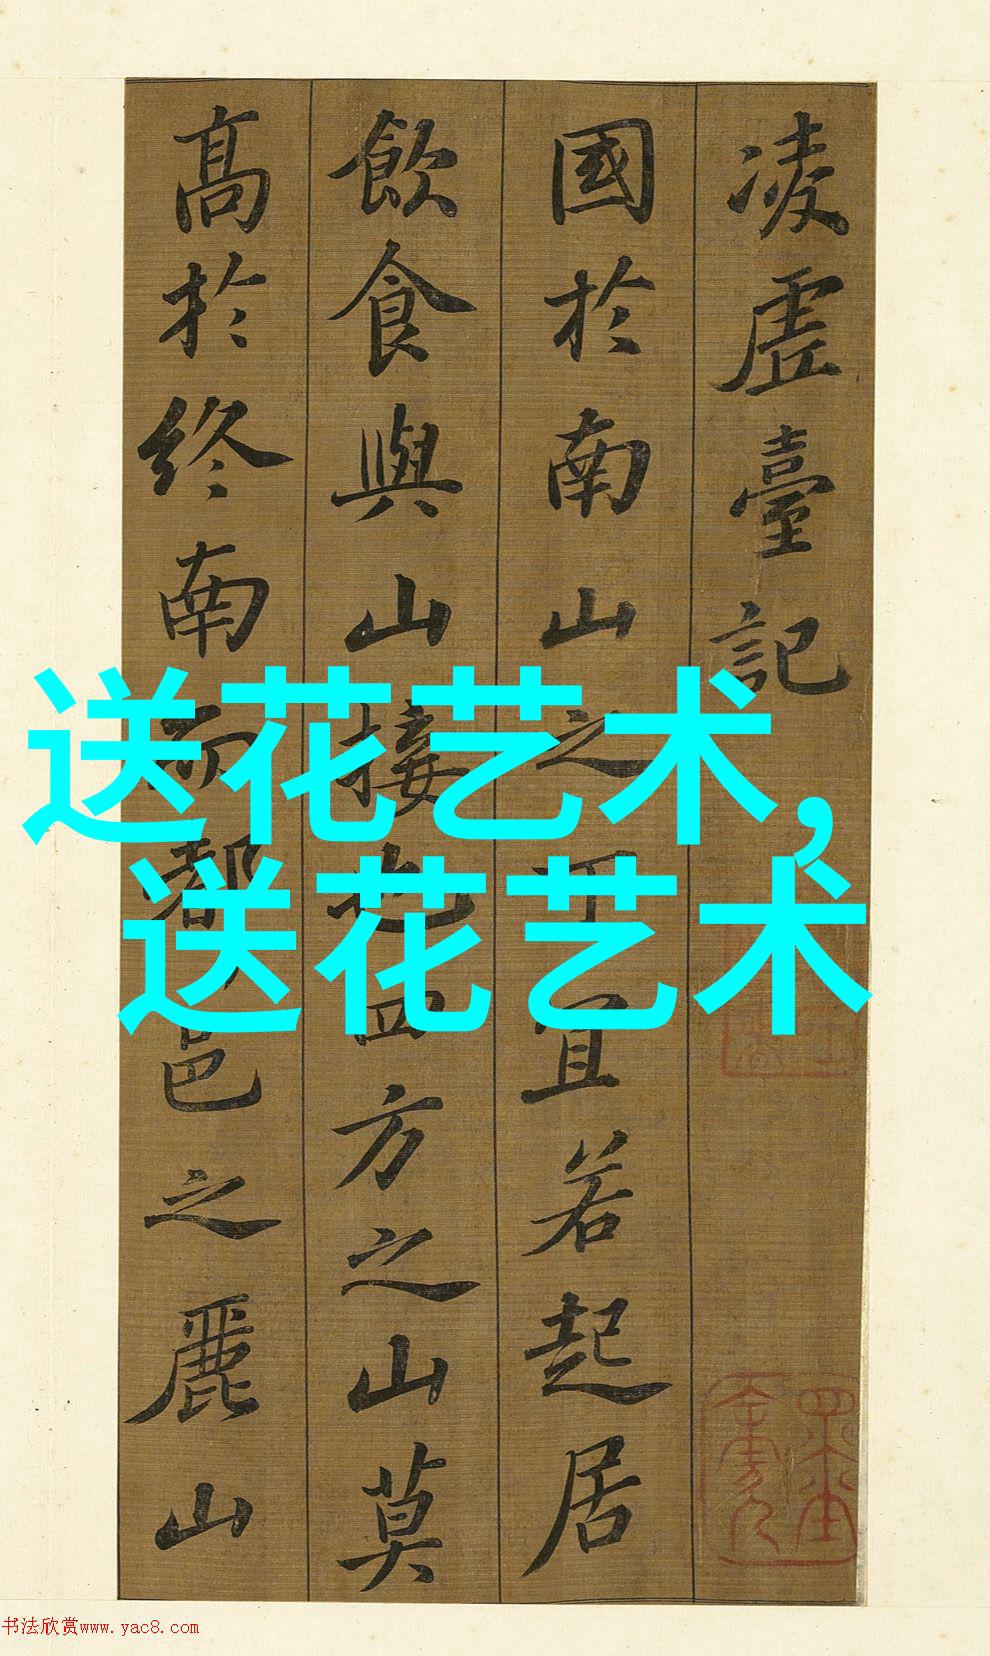 凌虛臺記
國於南山之下宜若起居
飲食與山接也四方之山莫
髙於終南而都邑之麗山
送花艺术,
送花艺术
书法欣赏www.yac8.com